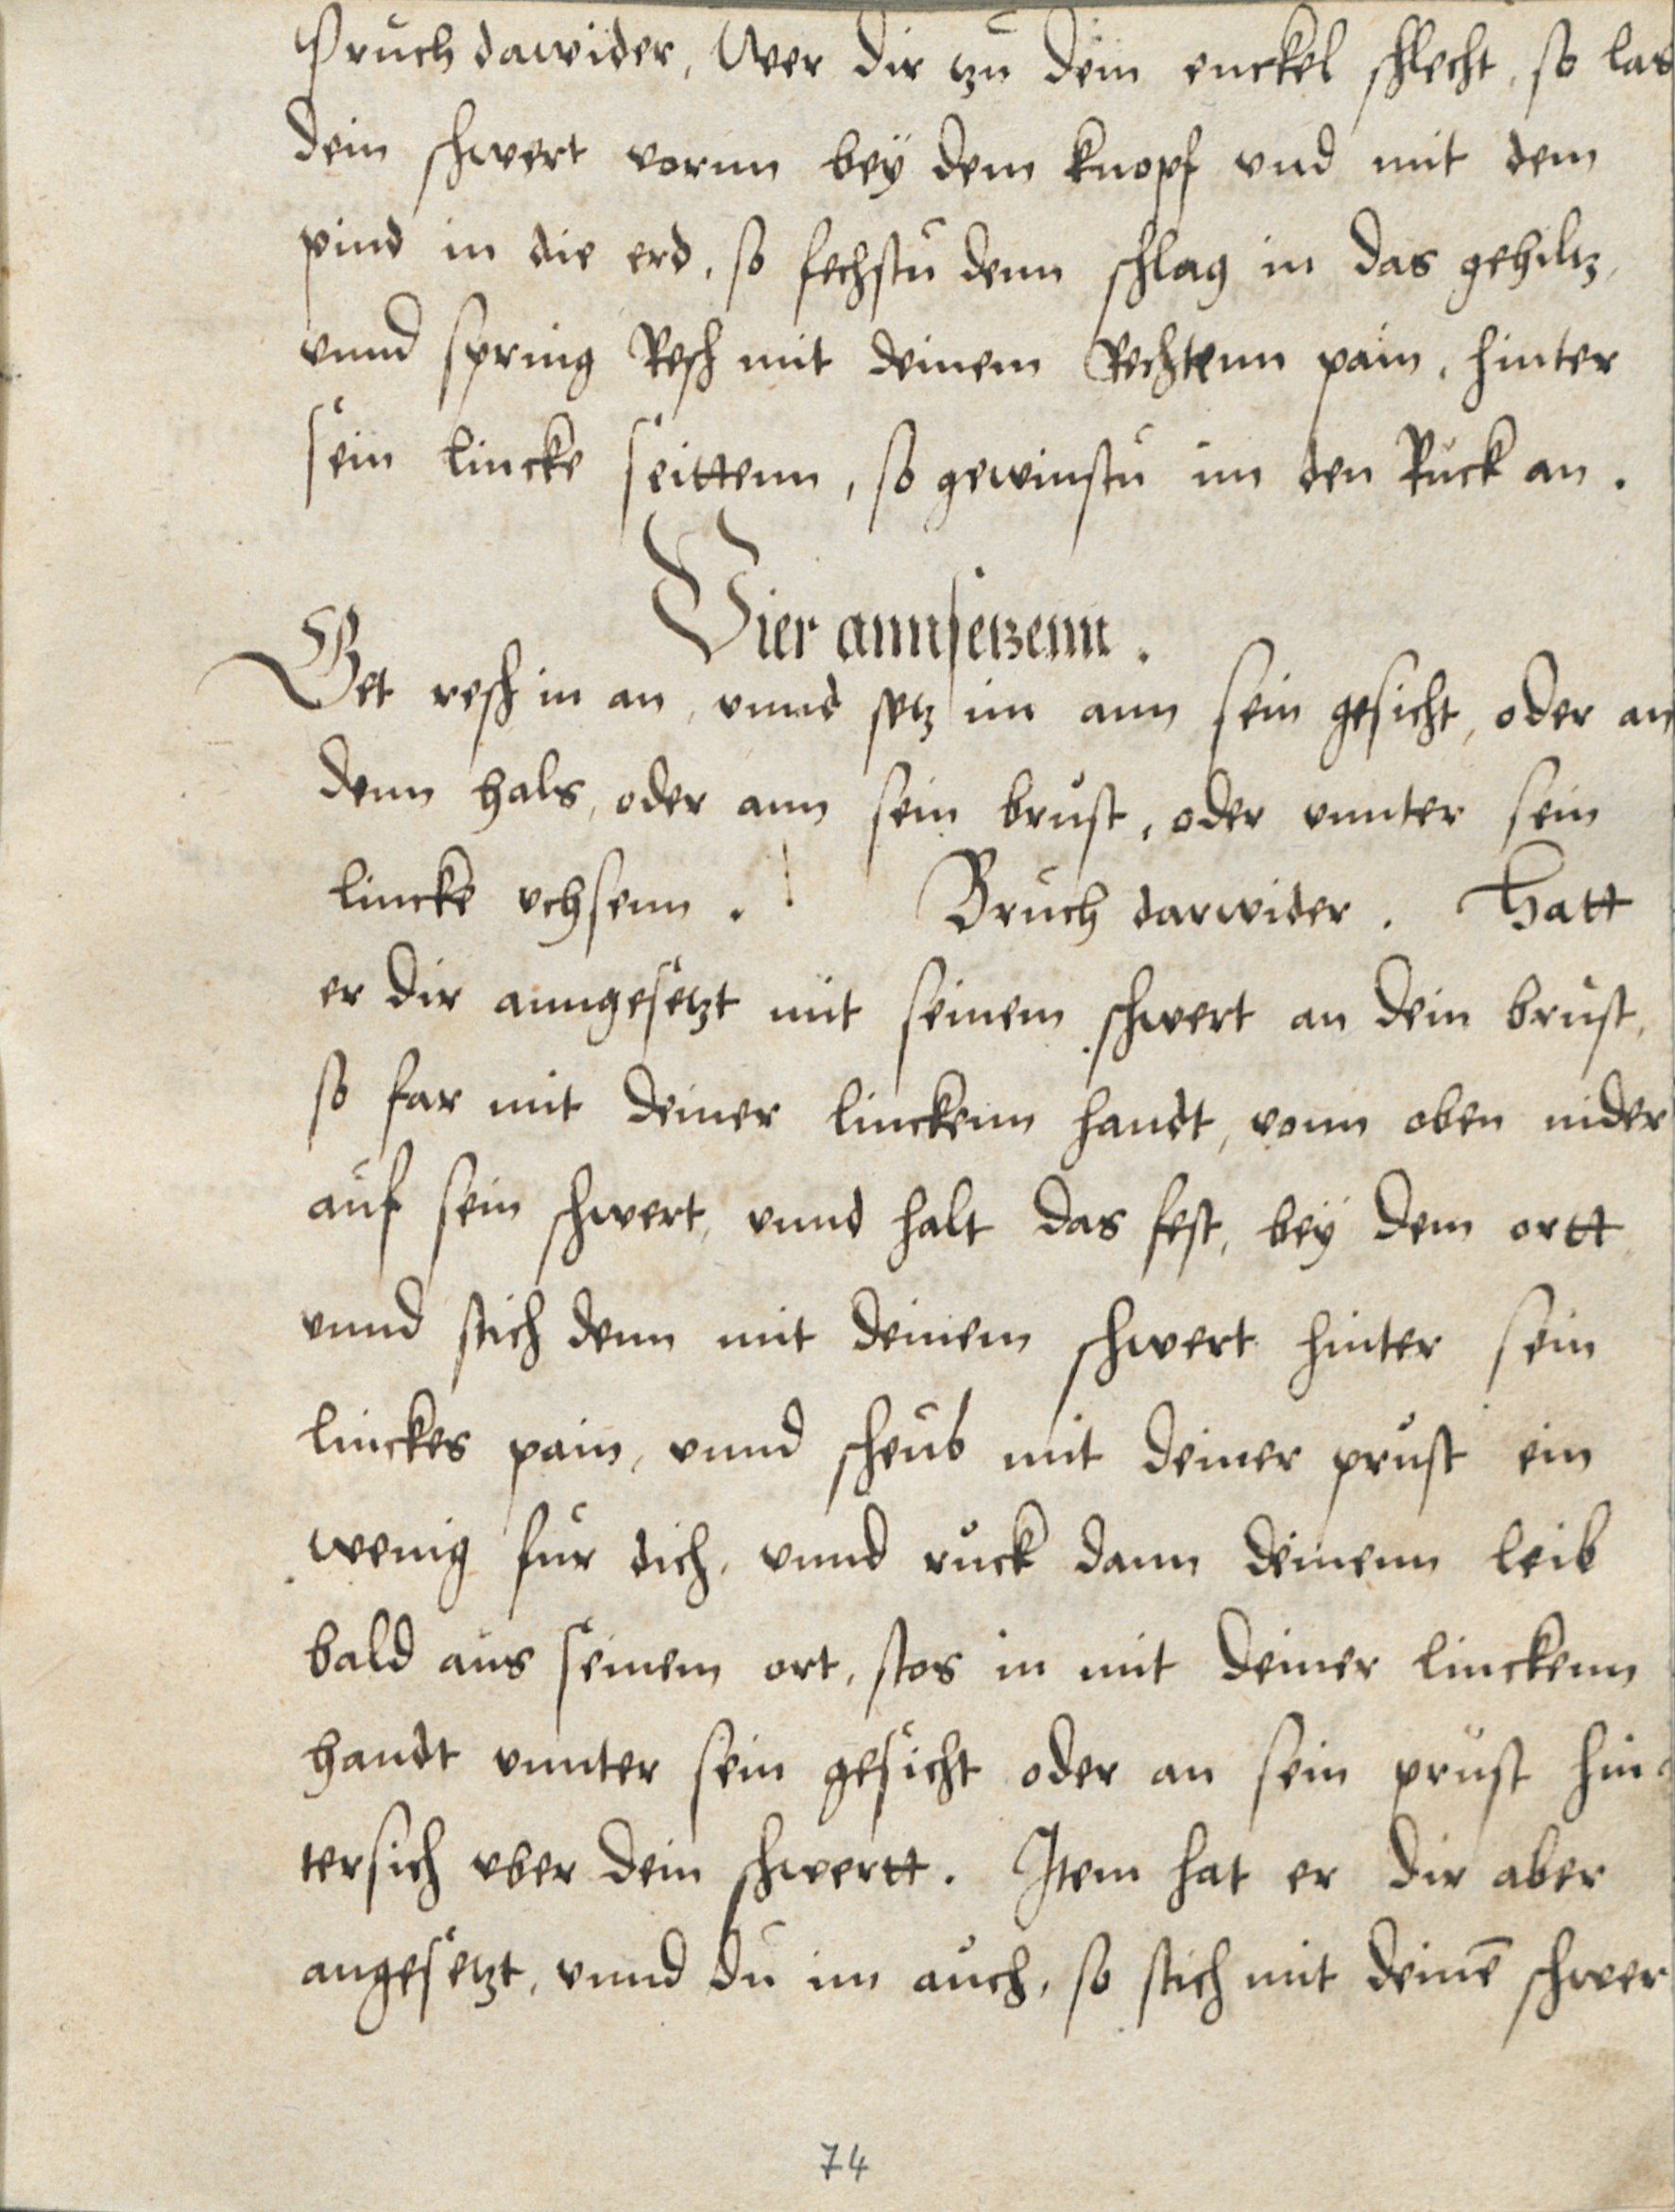 Pruch dawider, Wer dir tzu dein enckel schlecht, so las
dein schwert vornn beÿ dem knopf vnd mit dem
pind in die erd, so fechstu denn schlag in das gehiltz,
vnnd spring Resch mit deinem Rechtenn pain, hinter
sein lincke seittenn, so gewinstu im den Ruck an.
Vier annsetzenn.
Get resch in an, vnnd setz im ann sein gesicht, oder an
denn hals, oder ann sein brust, oder vnnter sein
lincke vchsenn. Bruch darwider. Hatt
er dir anngesetzt mit seinem schwert an dein brust,
so far mit deiner linckenn handt, vonn oben nider
auf sein schwert, vnnd halt das fest, beÿ dem ortt
vnnd stich denn mit deinem schwert hinter sein
linckes pain, vnnd scheub mit deiner prust ein
wenig fur dich, vnnd ruck dann deinenn leib
bald aus seinem ort, stos in mit deiner linckenn
handt vnnter sein gesicht oder an sein prust hin
tersich vber dein schwertt. Item hat er dir aber
angesetzt, vnnd du im auch, so stich mit deinē schwer
74